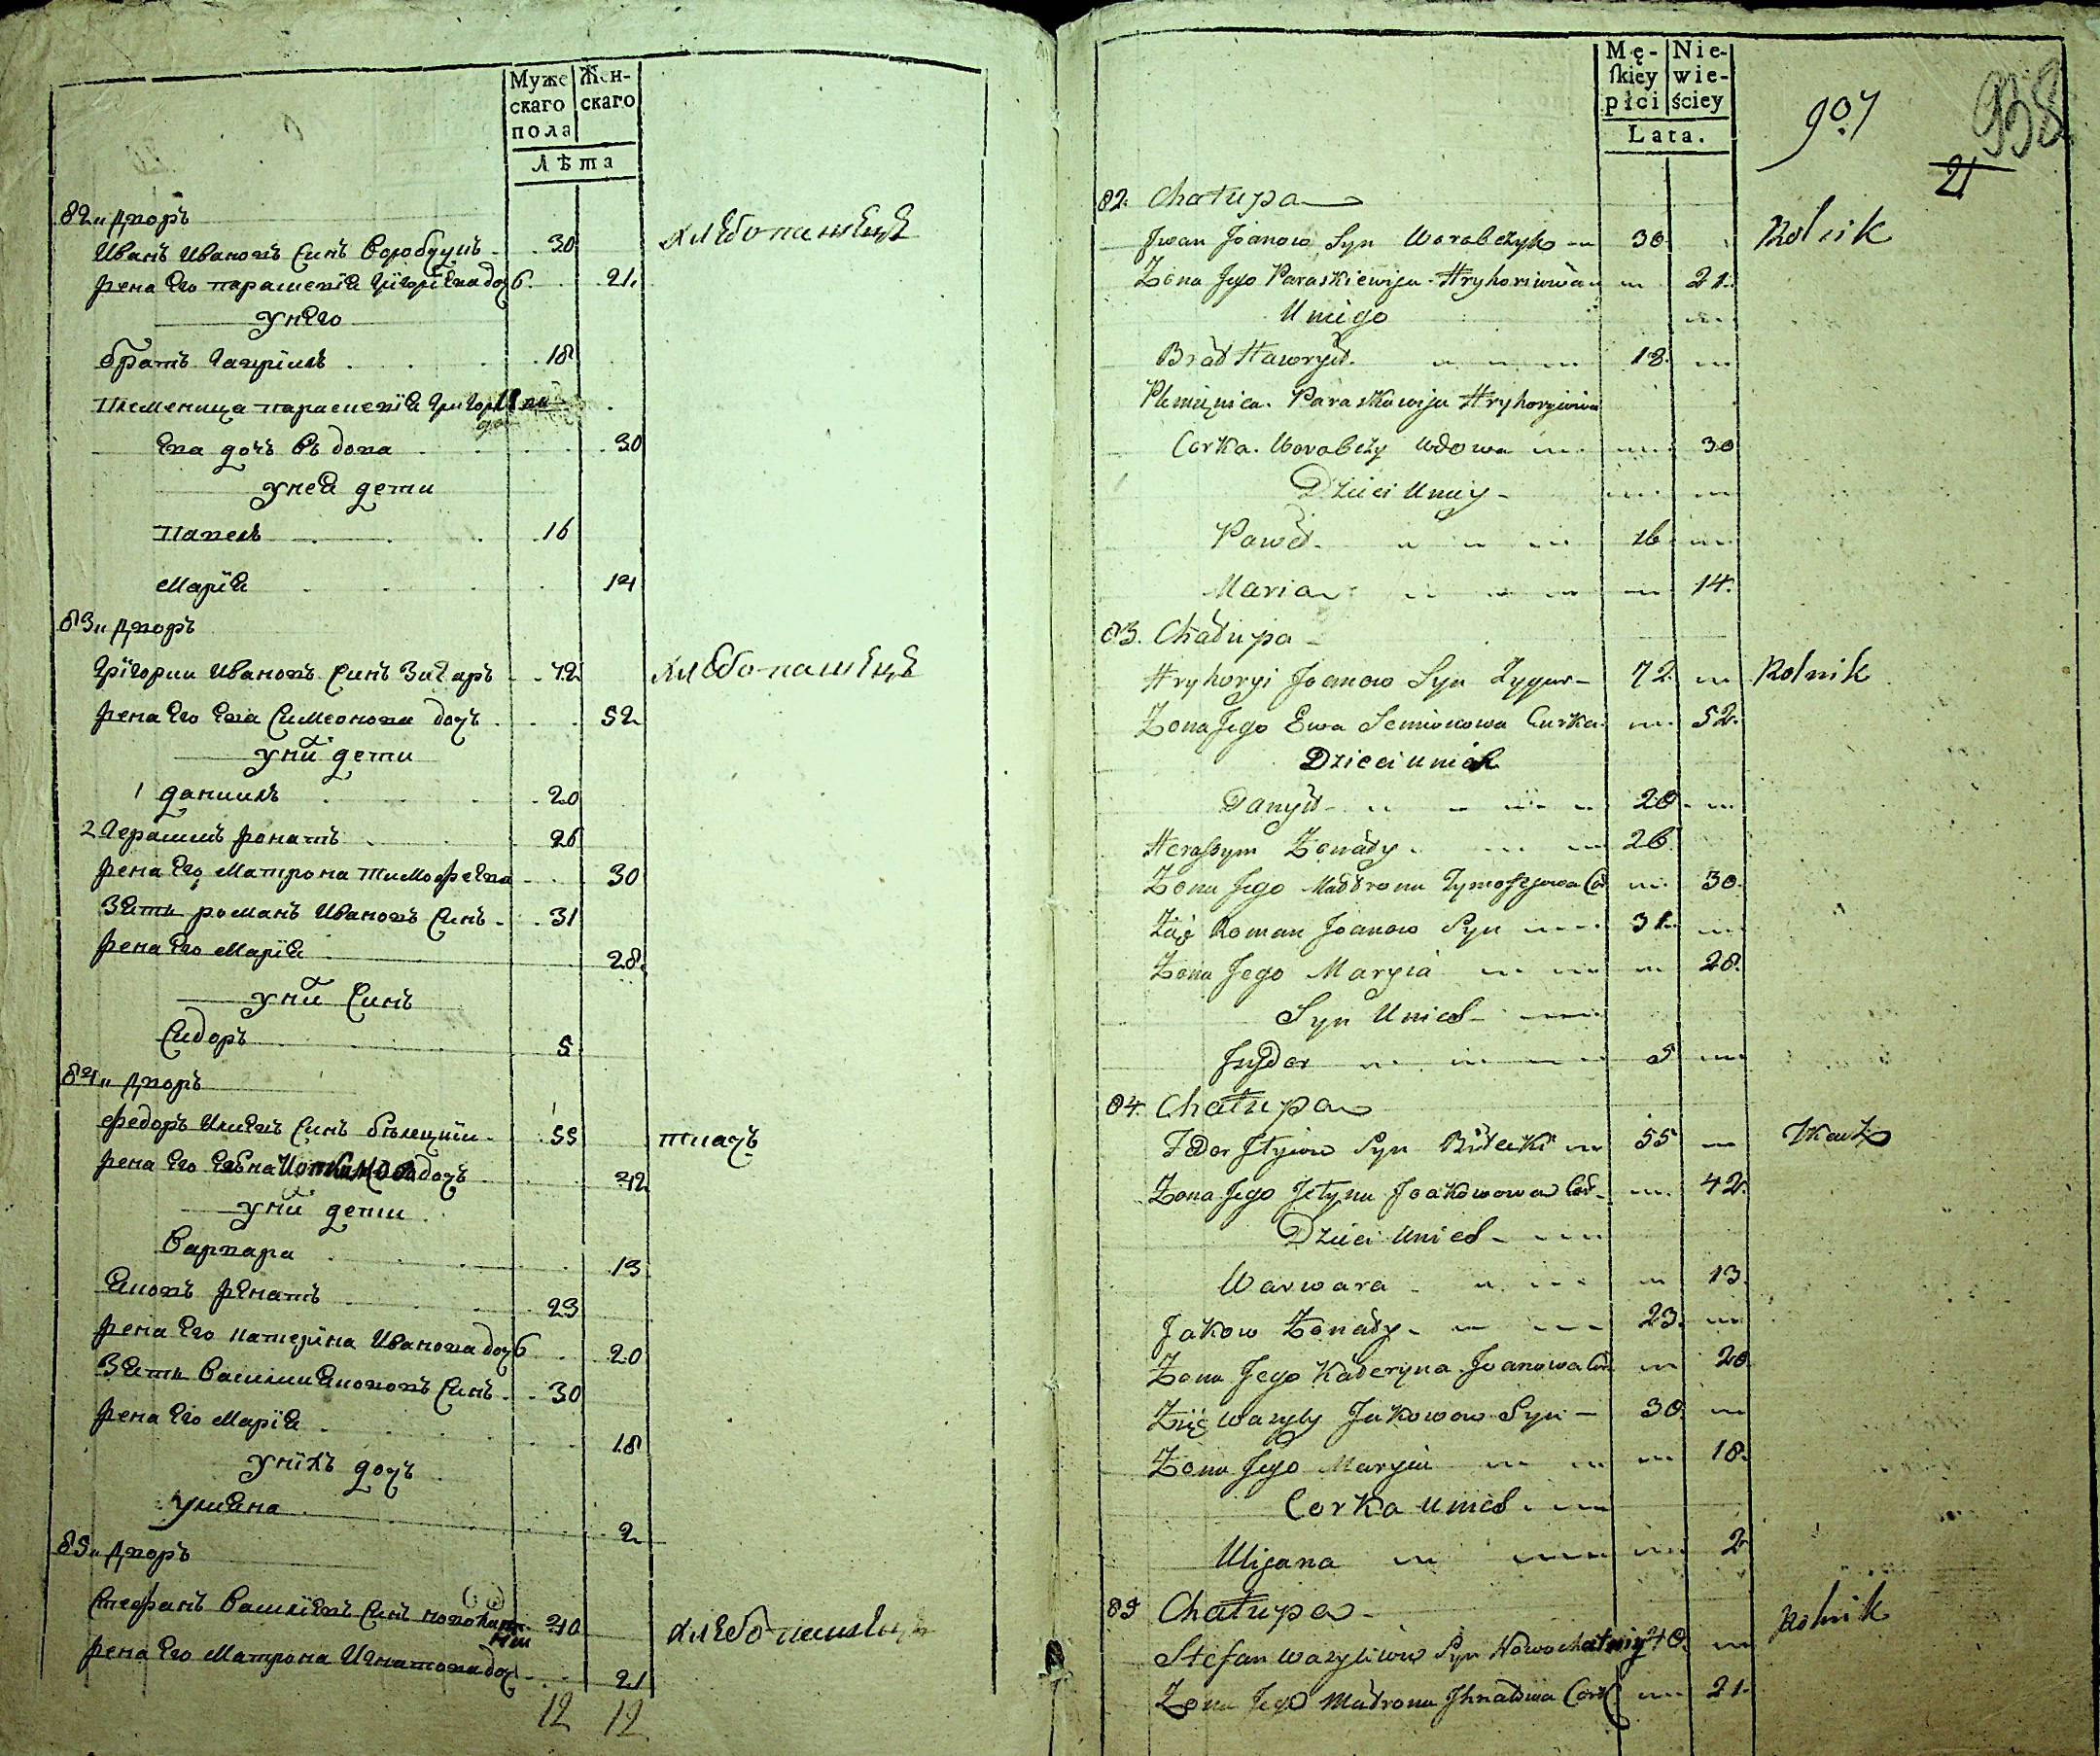 Муже
скаго
пола
Жен-
скаго
Лѣта
82 „ Дворъ
Иванъ Ивановъ Синъ Воробчукъ 30 хлѣбопашецъ
жена Его параскевія Григоріева доч 21
У него
братъ Гавріилъ 18
Племеница параскевія Григоріева
дочъ въдова 30
У неѧ дети
Павелъ 16
Маріѧ 14
83 „ Дворъ
Григории Ивановъ Синъ Зигаръ 72 хлѣбопашецъ
жена Его Ева Симеонова дочъ 52
У ни дети
1 Даниилъ 20
2 Герасимъ жонатъ 26
жена Его Матрона Тимофеева 30
Зѧть романъ Ивановъ Синъ 31
жена Его Маріѧ 28
У ни Синъ
Сидоръ 5
84 „ Дворъ
Федоръ Илиевъ Синъ белецкии 55 ткачъ
жена Его дочъ 42
У ни дети
Варвара 13
Ѧковъ женатъ 23
жена Его катерина Иванова доч 20
Зѧть Василии Ѧкововъ Синъ 30
жена Его Маріѧ 18
У нихъ дочъ
Улиѧна 2
85 „ Дворъ
Стефанъ Василіевъ Синъ новохат-
нии 40 хлебопашецъ
жена Его Матрона Игнатова доч 21
12 12
Mę-
ſkiey
płci
Nie-
wie-
ściey
Lata.
907
938
21
82. Chałupa
Iwan Joanow Syn Worobczyk 30 Rolnik
Zona Jego Paraskiewija Hryhoriwna 21.
U niego
Brat Hawrył 18.
Plemięnica Paraskewija Hryhoryiowa
Corka. Worobczy Wdowa 30
Dzieci U niey
Paweł 16
Maria 14.
83. Chałupa
Hryhoryi Joanow Syn Zygar 72. Rolnik
Zona Jego Ewa Semionowa Curka 52.
Dzieci u nich
Danyił 20
Heraſsym Zonaty 26
Zona Jego Matrona Tymofejowa Cor 30.
Zięć Roman Joanow Syn 31.
Zona Jego Maryia 28.
Syn U nich
Isydor 5
84. Chałupa
Fedor Jlyiow Syn Bilecki 55 Tkacz
Zona Jego Jełynu Joakimowa Cor 42.
Dzieci U nich
Warwara 13.
Jakow Zonaty 23.
Zona Jego Kateryna Joanowa Cor 20
Zięć Wasyly Jakowow Syn 30
Zona Jego Maryia 18.
Corka U nich
Ulijana 2
85 Chałupa
Stefan Wasyliiow Syn Nowochatniy 40. Rolnik
Zona Jego Matrona Jhnatowa Cork 21.